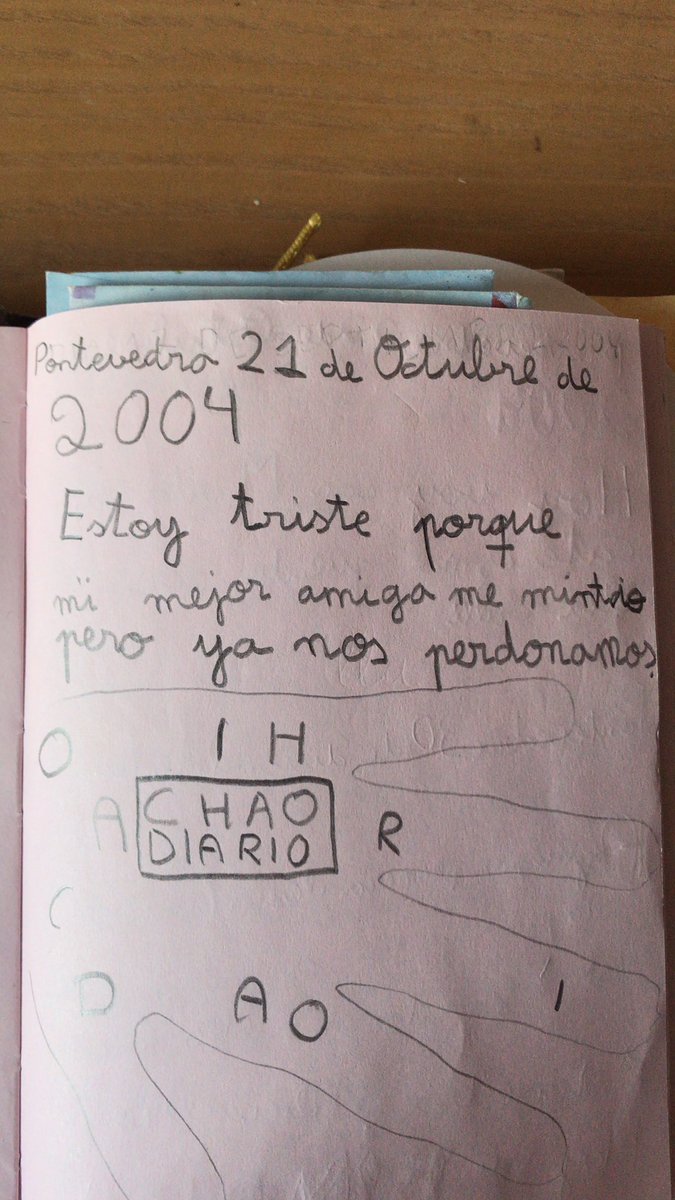 Pontevedra 21 de Octubre de
2004
Estoy triste porque
mi mejor amiga me mintió
pero ya nos perdonamos.
O I H
A CHAO R
DIARIO
C
D A O I